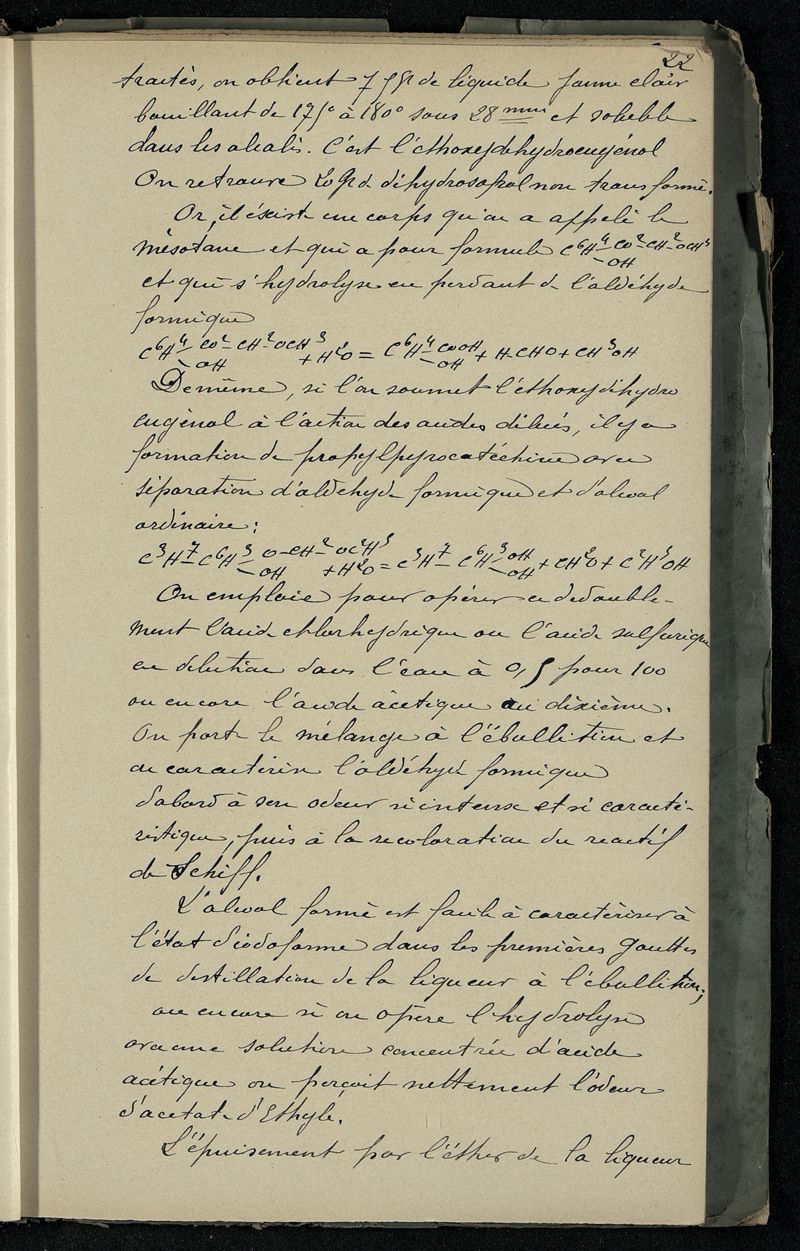 22
traités, on obtient 75 gr de liquide jaune clair
bouillant de 175° à 180° sous 28 mm et soluble
dans les alcalis. C'est l'éthoxydihydroeugénol
On retrouve 20 gr d. dihydrosafrol non transformé.
Or, il existe un corps qu'on a appelé le
mésotane et qui a pour formule C⁶H⁴-CO²-CH²OCH³
-OH
et qui s'hydrolyse en perdant d. l'aldéhyde
formique
C⁶H⁴-CO²-CH²OCH³ + H²O = C⁶H⁴-COOH + H-CHO + CH³OH
-OH -OH
De même, si l'on soumet l'éthoxydihydro
eugénol à l'action des acides dilués, il y a
formation de propylpyrocatéchine avec
séparation d'aldéhyde formique et d'alcool
ordinaire:
C³H⁷-C⁶H³-O-CH²-OC²H⁵ + H²O = C³H⁷-C⁶H³-OH + CH²O + C²H⁵OH
-OH -OH
On emploie pour opérer ce dédouble-
ment l'acide chlorhydrique ou l'acide sulfurique
en dilution dans l'eau à 0,5 pour 100
ou encore l'acide acétique au dixième.
On porte le mélange à l'ébullition et
on caractérise l'aldéhyde formique
d'abord à son odeur si intense et si caracté-
ristique, puis à la recoloration du reactif
de Schiff.
L'alcool formé est facile à caractériser à
l'état d'iodoforme dans les premières gouttes
de distillation de la liqueur à l'ébullition;
ou encore si on opère l'hydrolyse
avec une solution concentrée d'acide
acétique on perçoit nettement l'odeur
d'acétate d'Ethyle.
L'épuisement par l'éther de la liqueur